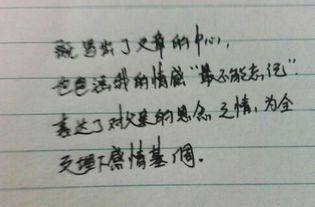 既写出了文章的中心，
也包涵我的情感“最不能忘记”.
表达了对父亲的思念之情，为全
文埋下感情基调。